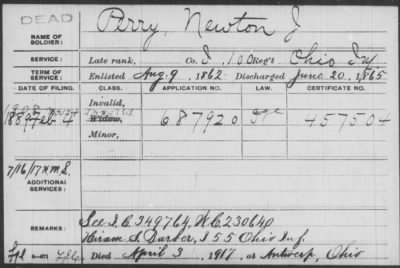 DEAD
NAME OF SOLDIER: Perry, Newton J
SERVICE: Late rank, Co. I, 100 Reg't Ohio Inf
TERM OF SERVICE: Enlisted Aug. 9, 1862 Discharged June 20, 1865
DATE OF FILING. CLASS. APPLICATION NO. LAW. CERTIFICATE NO.
Invalid,
1889 Feb 4 Widow, 687920 457504
Minor,
7/16/17
ADDITIONAL SERVICES:
REMARKS: See I.C. 349764, W.C. 230640
Hiram S. Barber, I 55 Ohio Inf.
Died April 3, 1917, at Antwerp, Ohio